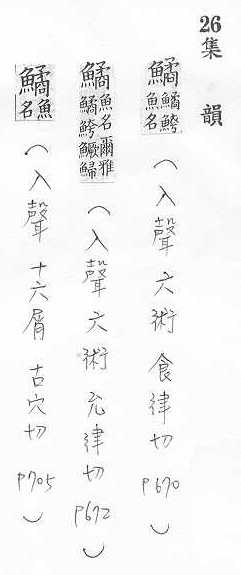 26集韻
鱊 鱊鮬魚名（入聲 六術 食律切 p670）
鱊 魚名爾雅鱊鮬鱖鯞（入聲 六術 允律切 p672）
鱊 魚名（入聲 十六屑 古穴切 p705）